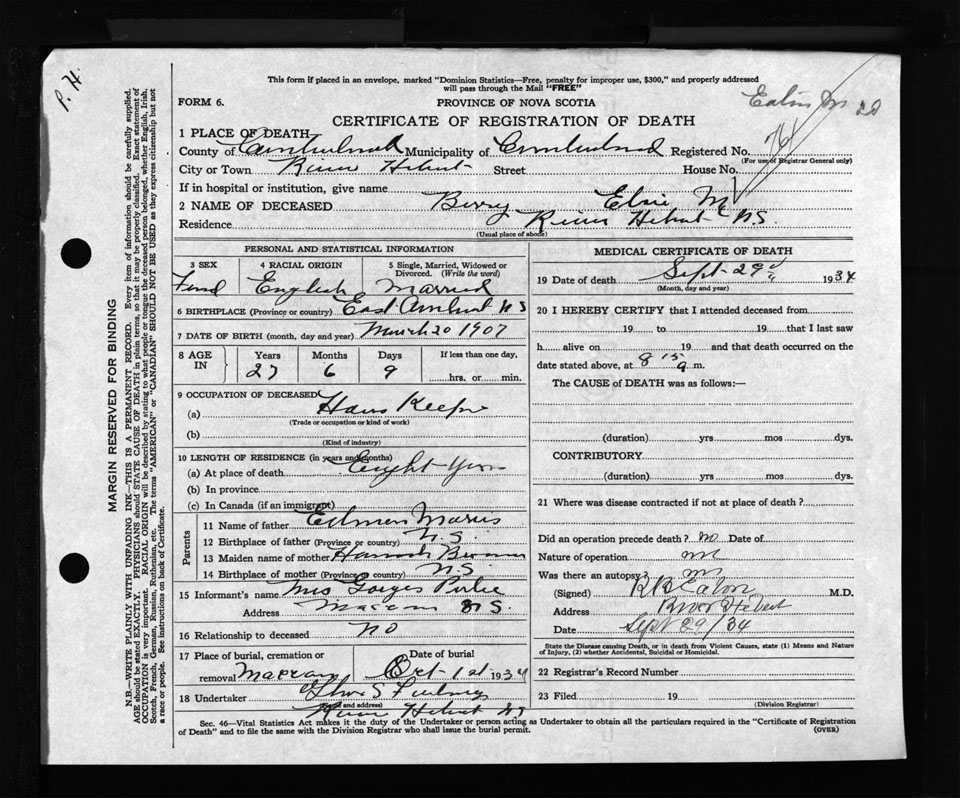 P. H.
This form if placed in an envelope, marked "Dominion Statistics—Free, penalty for improper use, $300," and properly addressed
will pass through the Mail "FREE"
FORM 6.
PROVINCE OF NOVA SCOTIA
CERTIFICATE OF REGISTRATION OF DEATH
Eaton M 20
1 PLACE OF DEATH
County of Cumberland Municipality of Cumberland Registered No. 764
(For use of Registrar General only)
City or Town River Hebert Street House No.
If in hospital or institution, give name
2 NAME OF DECEASED Berry Elsie M
Residence River Hebert N.S.
(Usual place of abode)
PERSONAL AND STATISTICAL INFORMATION
3 SEX 4 RACIAL ORIGIN 5 Single, Married, Widowed or
Divorced. (Write the word)
English Married
6 BIRTHPLACE (Province or country) East Amherst N S
7 DATE OF BIRTH (month, day and year) March 20 1907
8 AGE IN Years Months Days If less than one day,
27 6 9 hrs. or min.
9 OCCUPATION OF DECEASED
(a) House Keeper
(Trade or occupation or kind of work)
(b)
(Kind of industry)
10 LENGTH OF RESIDENCE (in years and months)
(a) At place of death Eight Years
(b) In province
(c) In Canada (if an immigrant)
Parents
11 Name of father
12 Birthplace of father (Province or country) N.S.
13 Maiden name of mother Hannah
14 Birthplace of mother (Province or country) N.S.
15 Informant's name Mrs
Address Maccan N S.
16 Relationship to deceased NO
17 Place of burial, cremation or Date of burial
removal Maccan Oct 1st 1934
18 Undertaker
(and address)
River Hebert N S
MEDICAL CERTIFICATE OF DEATH
19 Date of death Sept 29 1934
(Month, day and year)
20 I HEREBY CERTIFY that I attended deceased from
19 to 19 that I last saw
h alive on 19 and that death occurred on the
date stated above, at 8 15 a m.
The CAUSE of DEATH was as follows:—
(duration) yrs mos dys.
CONTRIBUTORY
(duration) yrs mos dys.
21 Where was disease contracted if not at place of death?
Did an operation precede death? no Date of
Nature of operation
Was there an autopsy? no
(Signed) Eaton M.D.
Address River Hebert
Date Sept 29/34
State the Disease causing Death, or in death from Violent Causes, state (1) Means and
Nature of Injury, (2) whether Accidental, Suicidal or Homicidal.
22 Registrar's Record Number
23 Filed 19
(Division Registrar)
Sec. 46—Vital Statistics Act makes it the duty of the Undertaker or person acting as Undertaker to obtain all the particulars required in the "Certificate of Registration
of Death" and to file the same with the Division Registrar who shall issue the burial permit.
(OVER)
MARGIN RESERVED FOR BINDING
N.B.—WRITE PLAINLY WITH UNFADING INK—THIS IS A PERMANENT RECORD. Every item of information should be carefully supplied.
AGE should be stated EXACTLY. PHYSICIANS should STATE CAUSE OF DEATH in plain terms, so that it may be properly classified. Exact statement of
OCCUPATION is very important. RACIAL ORIGIN will be described by stating to what people or tongue the deceased person belonged, whether English, Irish,
Scotch, French, German, Russian, Ruthenian, etc. The terms "AMERICAN" or "CANADIAN" SHOULD NOT BE USED as they express citizenship but not
a race or people. See instructions on back of Certificate.